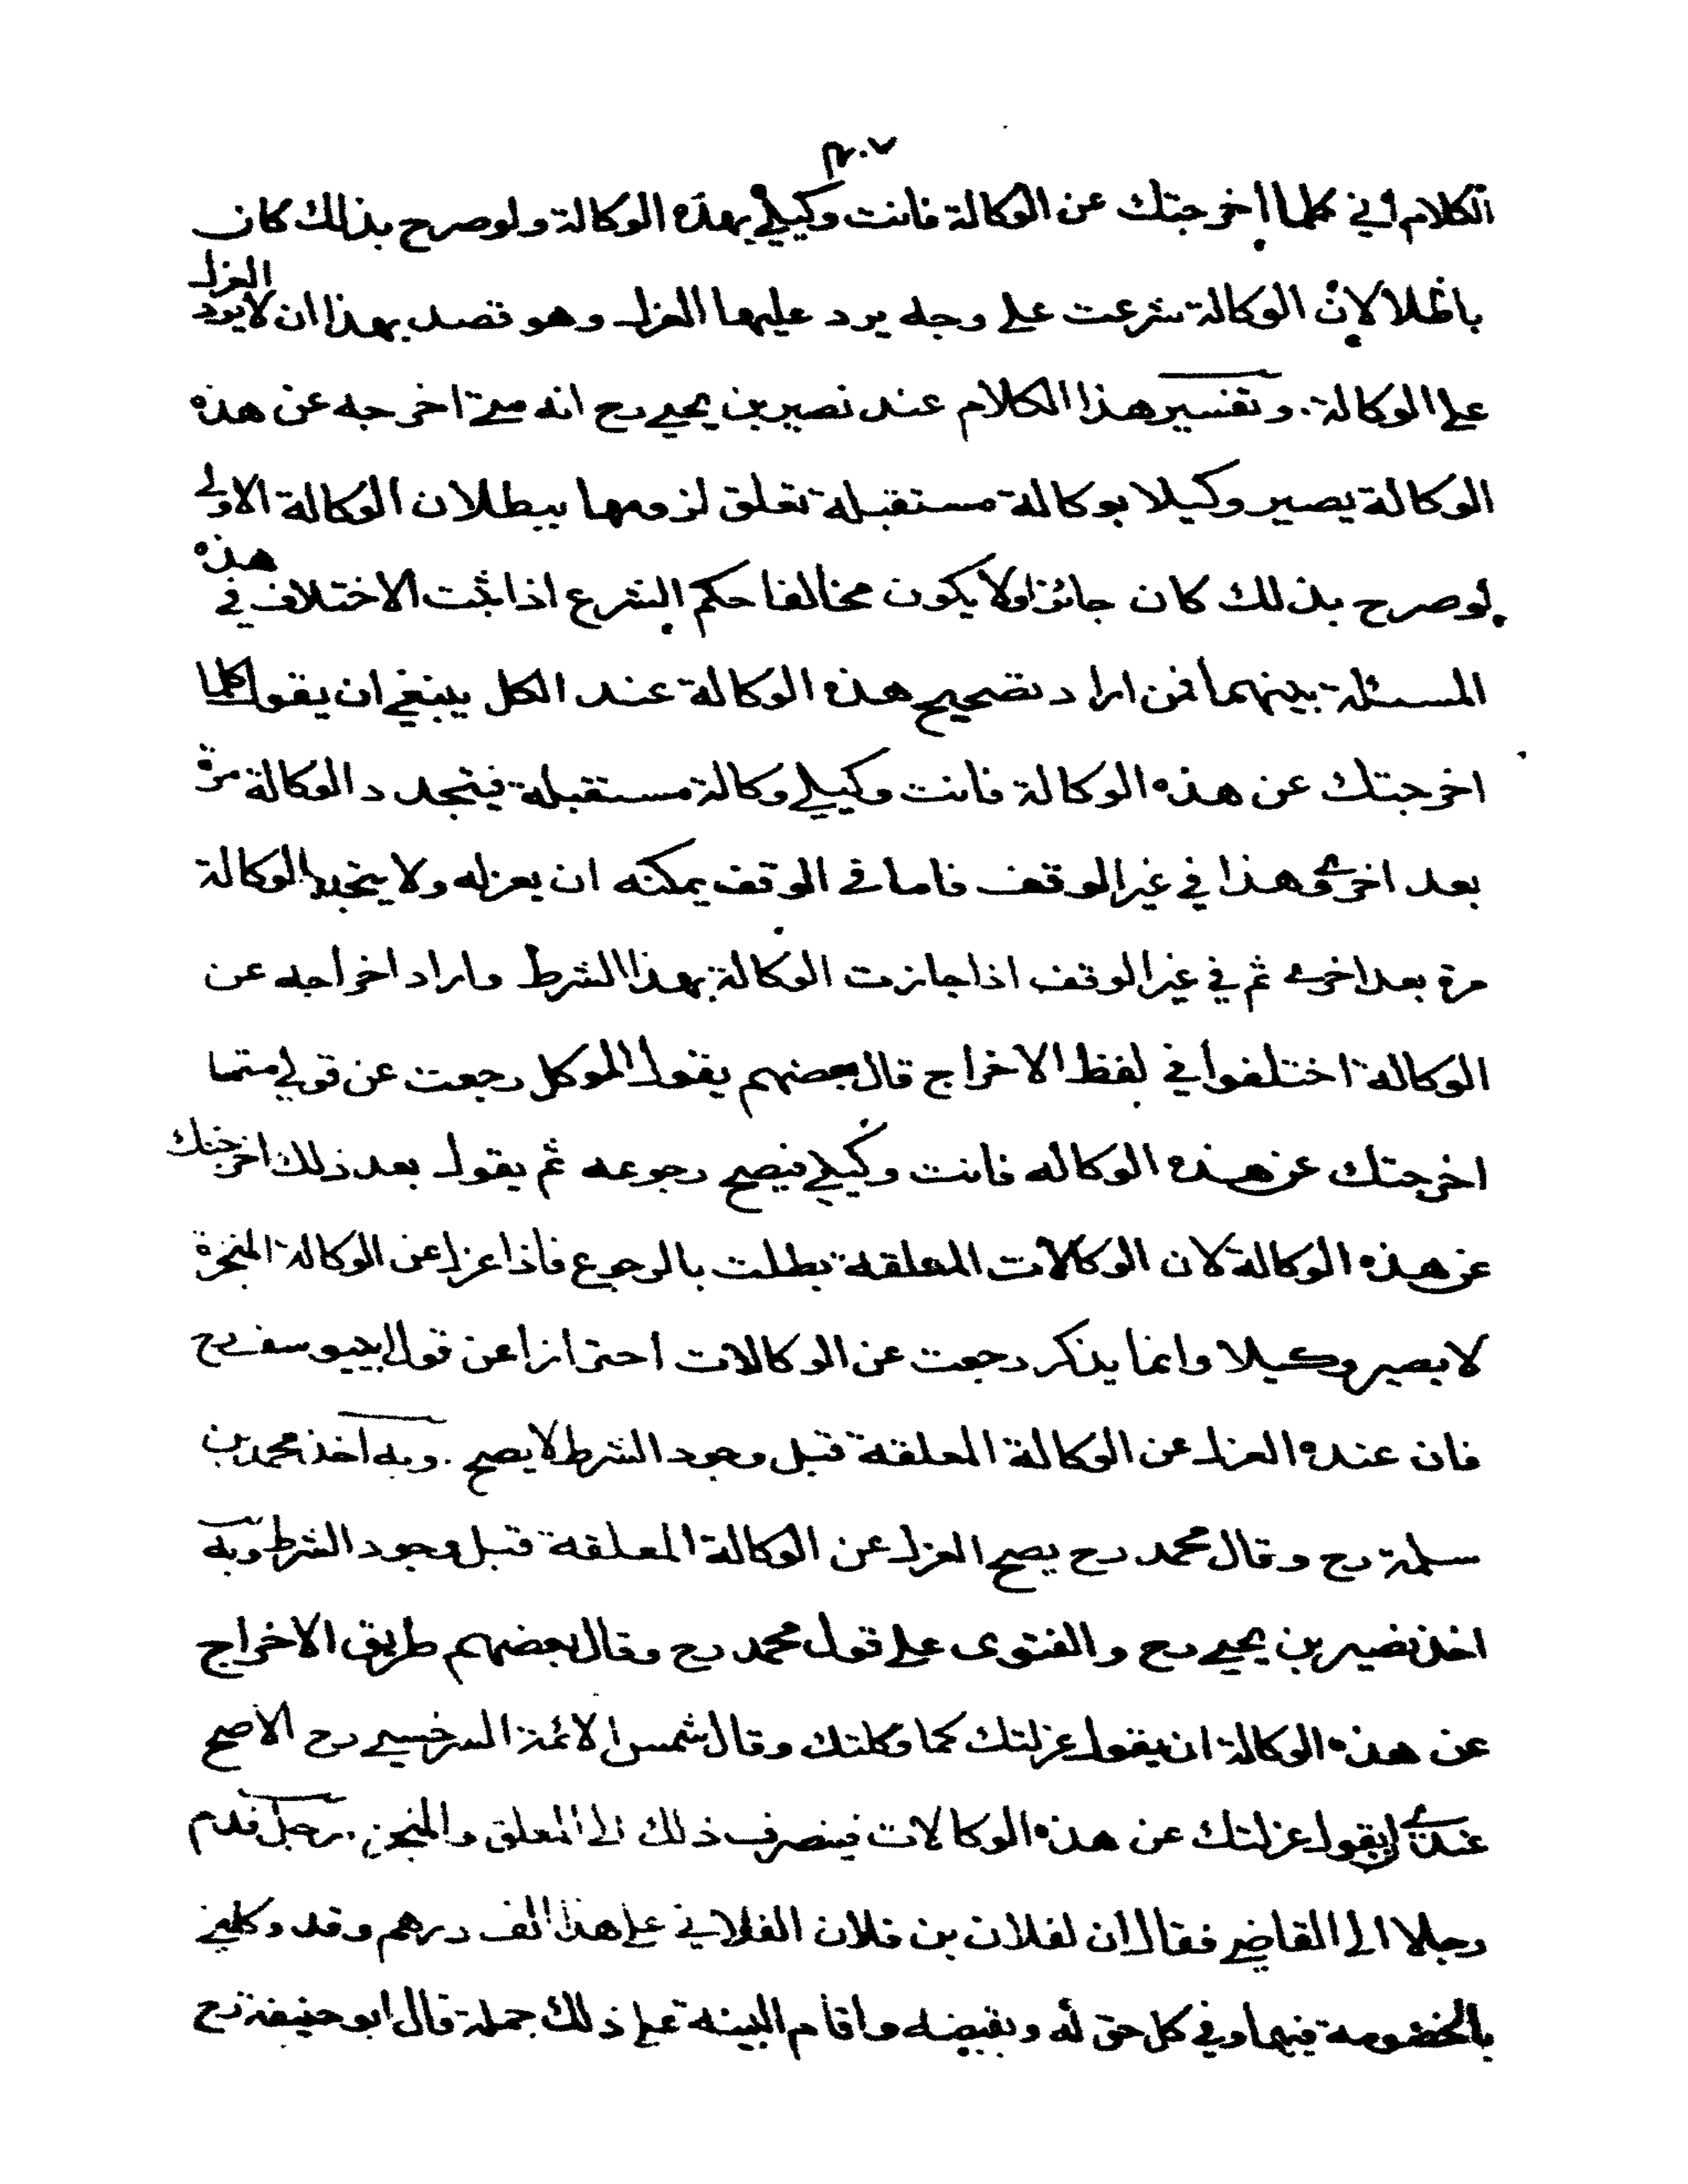 ٣٠٧
الكلام اني كلما اخرجتك عن الوكالة فانت وكيلي بهذه الوكالة ولو صرح بذلك كان
باطلا لان الوكالة شرعت على وجه يرد عليها العزل وهو قصد بهذا ان لا يرد العزل
على الوكالة. وتفسير هذا الكلام عند نصير بن يحيى رح انه متى اخرجه عن هذه
الوكالة يصير وكيلا بوكالة مستقبلة تعلق لزومها ببطلان الوكالة الاولى
لو صرح بذلك كان جائزا ولا يكون مخالفا حكم الشرع اذا ثبت الاختلاف في هذه
المسئلة بينهما فمن اراد تصحيح هذه الوكالة عند الكل ينبغي ان يقول كلما
اخرجتك عن هذه الوكالة فانت وكيلي وكالة مستقبلة فيتجدد الوكالة مرة
بعد اخرى وهذا في غير الوقف فاما في الوقف يمكنه ان يعزله ولا يتجدد الوكالة
مرة بعد اخرى ثم في غير الوقف اذا جازت الوكالة بهذا الشرط واراد اخراجه عن
الوكالة اختلفوا في لفظ الاخراج قال بعضهم يقول الموكل رجعت عن قولي متما
اخرجتك عن هذه الوكاله فانت وكيلي فيصح رجوعه ثم يقول بعد ذلك اخرجتك
عن هذه الوكالة لان الوكالات المعلقة بطلت بالرجوع فاذا عزل عن الوكالة المنجزة
لا يصير وكيلا وانما يذكر رجعت عن الوكالات احترازا عن قول ابي يوسف رح
فان عنده العزل عن الوكالة المعلقة قبل وجود الشرط لا يصح. وبه اخذ محمد بن
سلمة رح وقال محمد رح يصح العزل عن الوكالة المعلقة قبل وجود الشرط وبه
اخذ نصير بن يحيى رح والفتوى على قول محمد رح وقال بعضهم طريق الاخراج
عن هذه الوكالة ان يقول عزلتك كما وكلتك وقال شمس الائمة السرخسي رح الاصح
عندي ان يقول عزلتك عن هذه الوكالات فينصرف ذلك الى المعلق والمنجز. رجل قدم
رجلا الى القاضي فقال ان لفلان بن فلان الفلاني على هذا الف درهم وقد وكلني
بالخصومة فيها وفي كل حق له وبقبضه واقام البينة على ذلك جملة قال ابو حنيفة رح